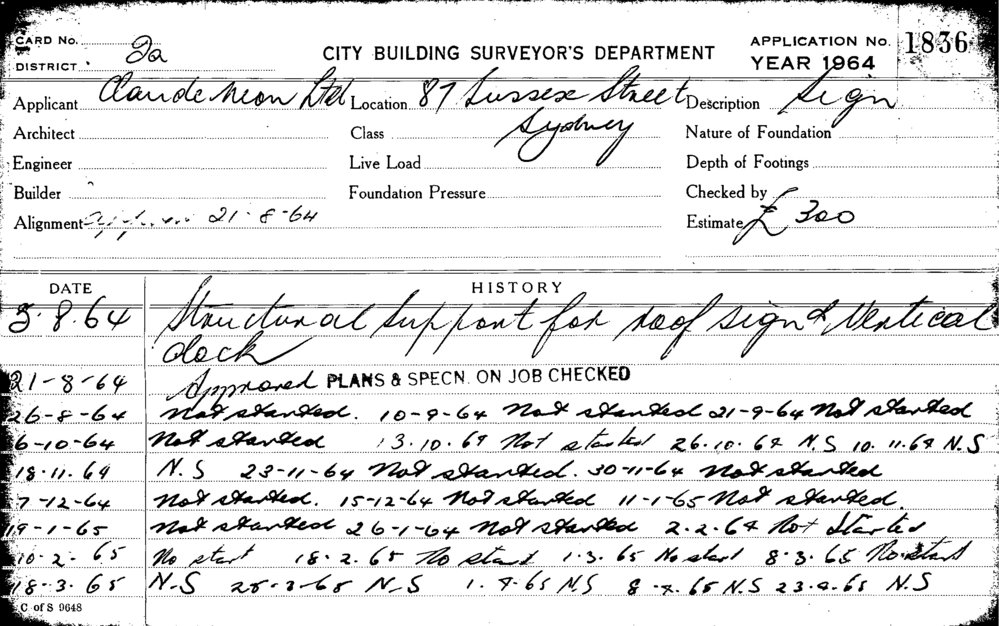 CARD No.
DISTRICT 2a
CITY BUILDING SURVEYOR'S DEPARTMENT
APPLICATION No. 1836
YEAR 1964
Applicant Claude Neon Ltd Location 87 Sussex Street Description Sign
Sydney
Architect Class Nature of Foundation
Engineer Live Load Depth of Footings
Builder Foundation Pressure Checked by
Alignment 21-8-64 Estimate £ 300
DATE HISTORY
3.8.64 Structural Support for roof sign & Vertical
clock
21-8-64 Approved PLANS & SPECN. ON JOB CHECKED
26-8-64 Not started. 10-9-64 Not started 21-9-64 Not started
6-10-64 Not started 13.10.64 Not started 26.10.64 N.S 10.11.64 N.S
18.11.64 N.S 23-11-64 Not started. 30-11-64 Not started
7-12-64 Not started. 15-12-64 Not started 11-1-65 Not started.
19-1-65 Not started 26-1-64 Not started 2.2.64 Not Started
10.2.65 No start 18.2.65 No start 1.3.65 No start 8.3.65 No start
18.3.65 N.S 25-3-65 N.S 1.4.65 N.S 8.4.65 N.S 23.4.65 N.S
C of S 9648